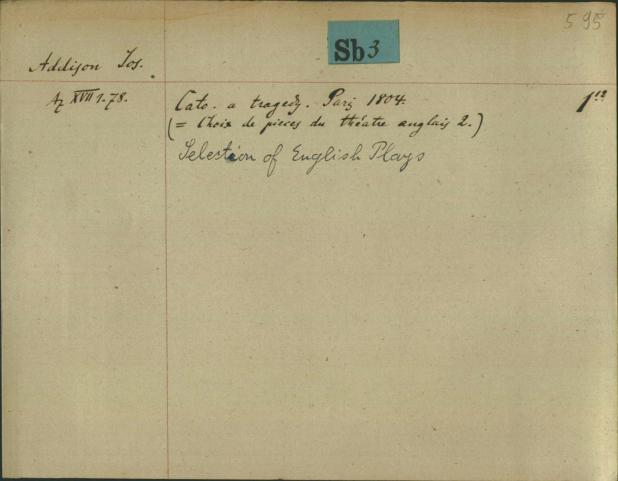 595
Sb3
Addison Jos.
Az XVII 1.78.
Cato. a tragedy. Paris 1804.
1¹²
(= Choix de pieces du théatre anglais 2.)
Selection of English Plays